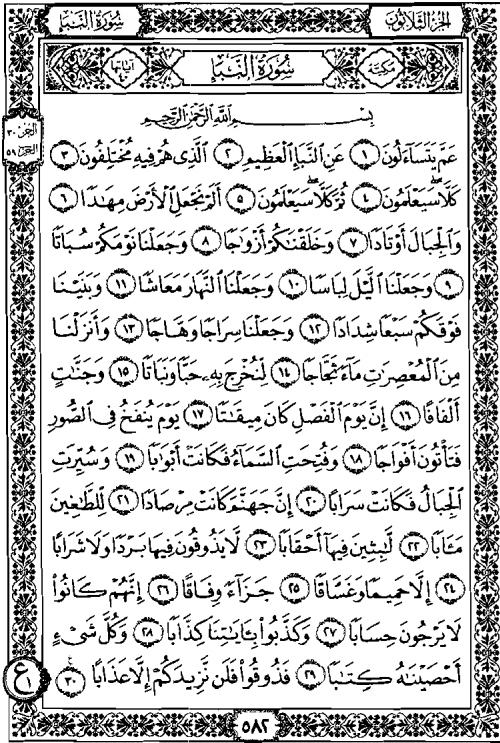 سُورَةُ النَّبَإِ
الجُزءُ الثَّلَاثُونَ
آيَاتُهَا ٤٠
سُورَةُ النَّبَإِ
مَكِّيَّة
الجزء ٣٠
الحزب ٥٩
بِسْمِ اللَّهِ الرَّحْمَٰنِ الرَّحِيمِ
عَمَّ يَتَسَآءَلُونَ ١ عَنِ النَّبَإِ الْعَظِيمِ ٢ الَّذِى هُمْ فِيهِ مُخْتَلِفُونَ ٣
كَلَّا سَيَعْلَمُونَ ٤ ثُمَّ كَلَّا سَيَعْلَمُونَ ٥ أَلَمْ نَجْعَلِ الْأَرْضَ مِهَٰدًا ٦
وَالْجِبَالَ أَوْتَادًا ٧ وَخَلَقْنَٰكُمْ أَزْوَٰجًا ٨ وَجَعَلْنَا نَوْمَكُمْ سُبَاتًا
٩ وَجَعَلْنَا الَّيْلَ لِبَاسًا ١٠ وَجَعَلْنَا النَّهَارَ مَعَاشًا ١١ وَبَنَيْنَا
فَوْقَكُمْ سَبْعًا شِدَادًا ١٢ وَجَعَلْنَا سِرَاجًا وَهَّاجًا ١٣ وَأَنزَلْنَا
مِنَ الْمُعْصِرَٰتِ مَآءً ثَجَّاجًا ١٤ لِّنُخْرِجَ بِهِۦ حَبًّا وَنَبَاتًا ١٥ وَجَنَّٰتٍ
أَلْفَافًا ١٦ إِنَّ يَوْمَ الْفَصْلِ كَانَ مِيقَٰتًا ١٧ يَوْمَ يُنفَخُ فِى الصُّورِ
فَتَأْتُونَ أَفْوَاجًا ١٨ وَفُتِحَتِ السَّمَآءُ فَكَانَتْ أَبْوَٰبًا ١٩ وَسُيِّرَتِ
الْجِبَالُ فَكَانَتْ سَرَابًا ٢٠ إِنَّ جَهَنَّمَ كَانَتْ مِرْصَادًا ٢١ لِّلطَّٰغِينَ
مَـَٔابًا ٢٢ لَّٰبِثِينَ فِيهَآ أَحْقَابًا ٢٣ لَّا يَذُوقُونَ فِيهَا بَرْدًا وَلَا شَرَابًا
٢٤ إِلَّا حَمِيمًا وَغَسَّاقًا ٢٥ جَزَآءً وِفَاقًا ٢٦ إِنَّهُمْ كَانُوا۟
لَا يَرْجُونَ حِسَابًا ٢٧ وَكَذَّبُوا۟ بِـَٔايَٰتِنَا كِذَّابًا ٢٨ وَكُلَّ شَىْءٍ
أَحْصَيْنَٰهُ كِتَٰبًا ٢٩ فَذُوقُوا۟ فَلَن نَّزِيدَكُمْ إِلَّا عَذَابًا ٣٠
ع ١
٥٨٢